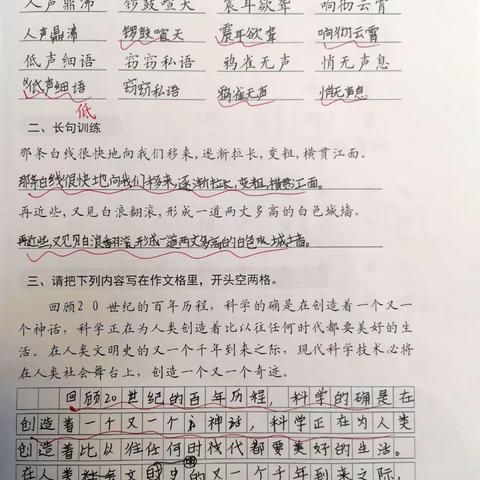 人声鼎沸 锣鼓喧天 震耳欲聋 响彻云霄
人声鼎沸 锣鼓喧天 震耳欲聋 响彻云霄
低声细语 窃窃私语 鸦雀无声 悄无声息
低声细语 窃窃私语 鸦雀无声 悄无声息
低
二、长句训练
那条白线很快地向我们移来,逐渐拉长,变粗,横贯江面。
那条白线很快地向我们移来,逐渐拉长,变粗,横贯江面。
再近些,又见白浪翻滚,形成一道两丈多高的白色城墙。
再近些,又见白浪翻滚,形成一道两丈多高的白色城墙。
三、请把下列内容写在作文格里,开头空两格。
回顾20世纪的百年历程,科学的确是在创造着一个又一
个神话,科学正在为人类创造着比以往任何时代都要美好的生
活。在人类文明史的又一个千年到来之际,现代科学技术必将
在人类社会舞台上,创造一个又一个奇迹。
回顾20世纪的百年历程,科学的确是在
创造着一个又一个神话,科学正在为人类
创造着比以往任何时代都要美好的生活。
在人类 文 史的又一个千年到来之际,